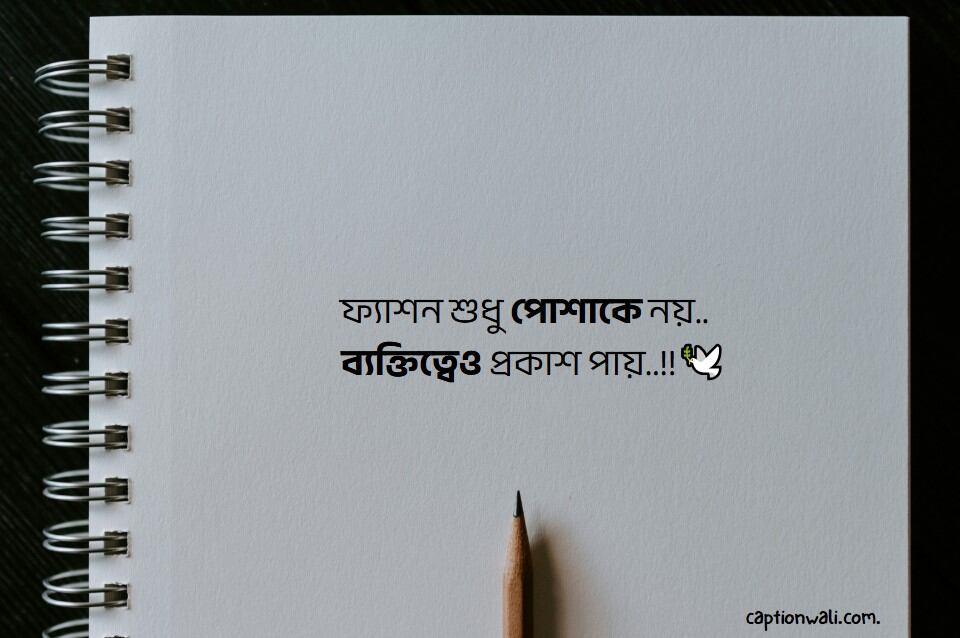 ফ্যাশন শুধু পোশাকে নয়..
ব্যক্তিত্বেও প্রকাশ পায়..!! 🕊️
captionwali.com.